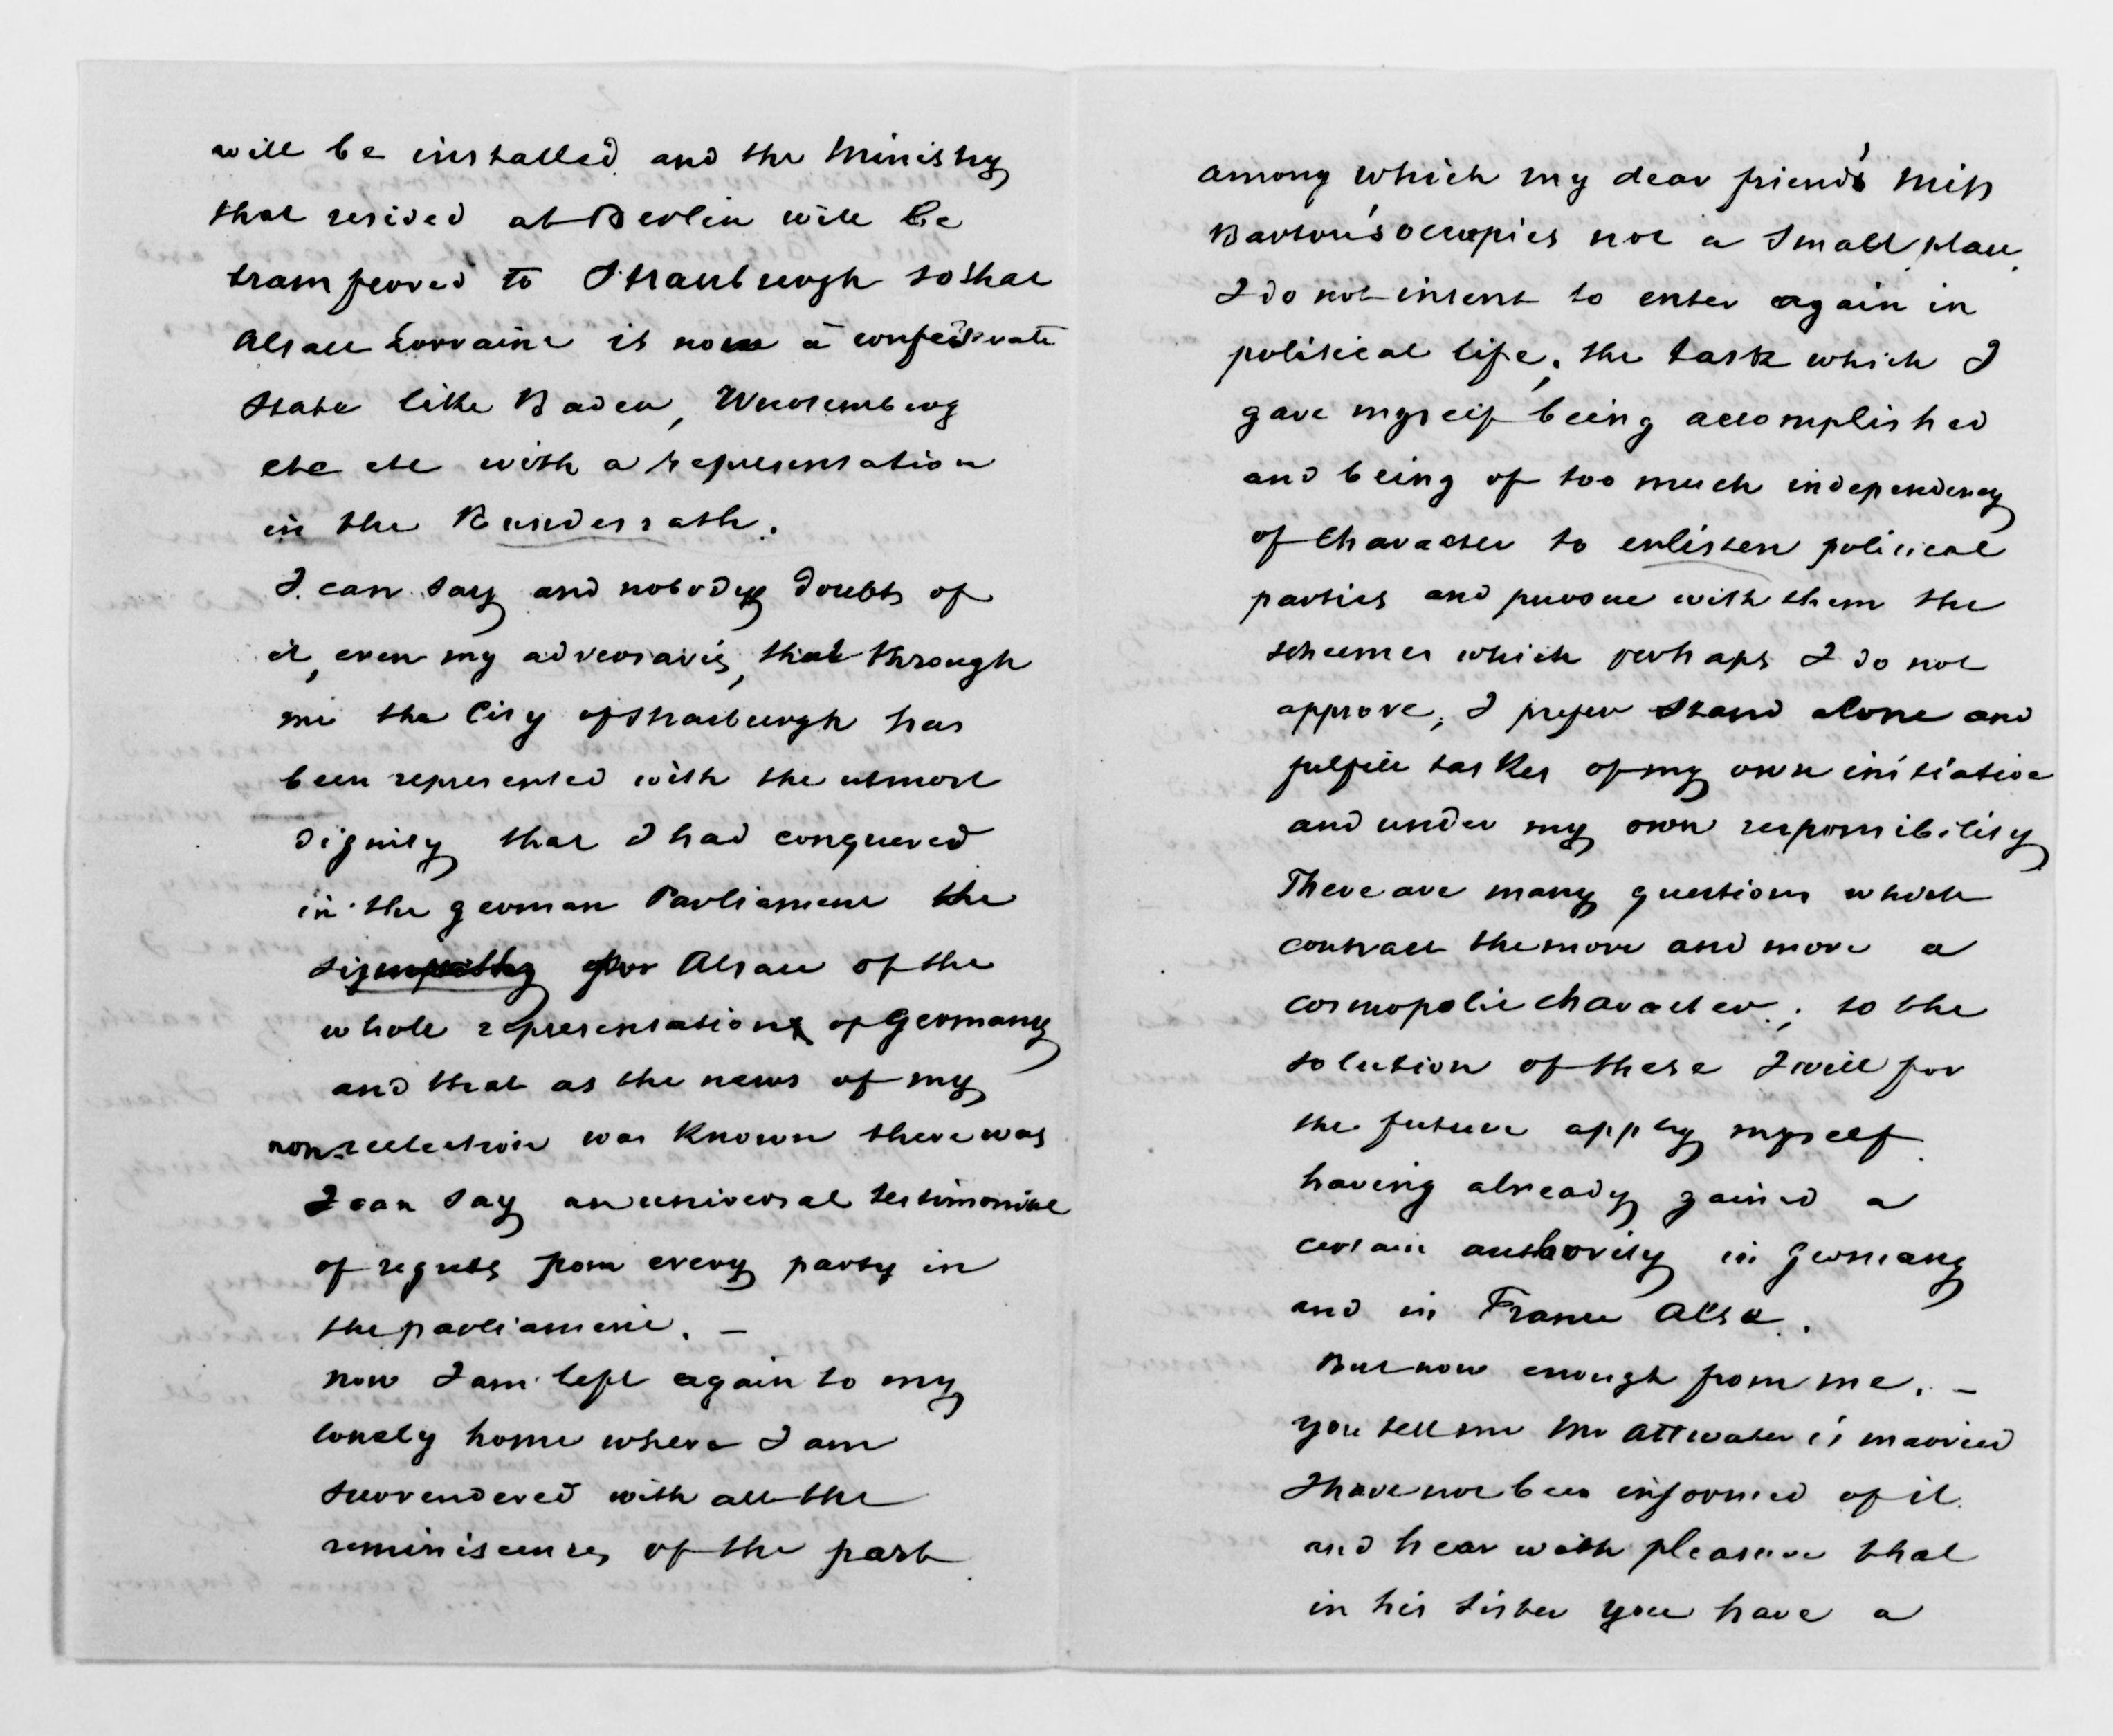 will be installed and the Ministry
that resided at Berlin will be
transferred to Strasburgh so that
Alsace Lorraine is now a confederate
State like Baden, Wurtemberg
etc etc with a representation
in the Bundesrath.
I can say and nobody doubts of
it, even my adversaris, that through
me the City of Strasburgh has
been represented with the utmost
dignity that I had conquered
in the german Parliament the
simpathy for Alsace of the
whole representation of Germany
and that as the news of my
non-reelection was known there was
I can say an universal testimonial
of regrets from every party in
the parliament. —
now I am left again to my
lonely home where I am
surrendered with all the
reminiscences of the past
among which my dear friend's Miss
Barton's occupies not a small place.
I do not intent to enter again in
political life, the task which I
gave myself being accomplished
and being of too much independency
of Character to enlisten political
parties and pursue with them the
scheemes which perhaps I do not
approve, I prefer stand alone and
fulfill taskes of my own initiative
and under my own responsibility
There are many questions which
contract the more and more a
cosmopolic character; to the
solution of these I will for
the future apply myself
having already gained a
certain authority in Germany
and in France also.
But now enough from me. —
you tell me Mr Attwater is married
I have not been informed of it
and hear with pleasure that
in his sister you have a